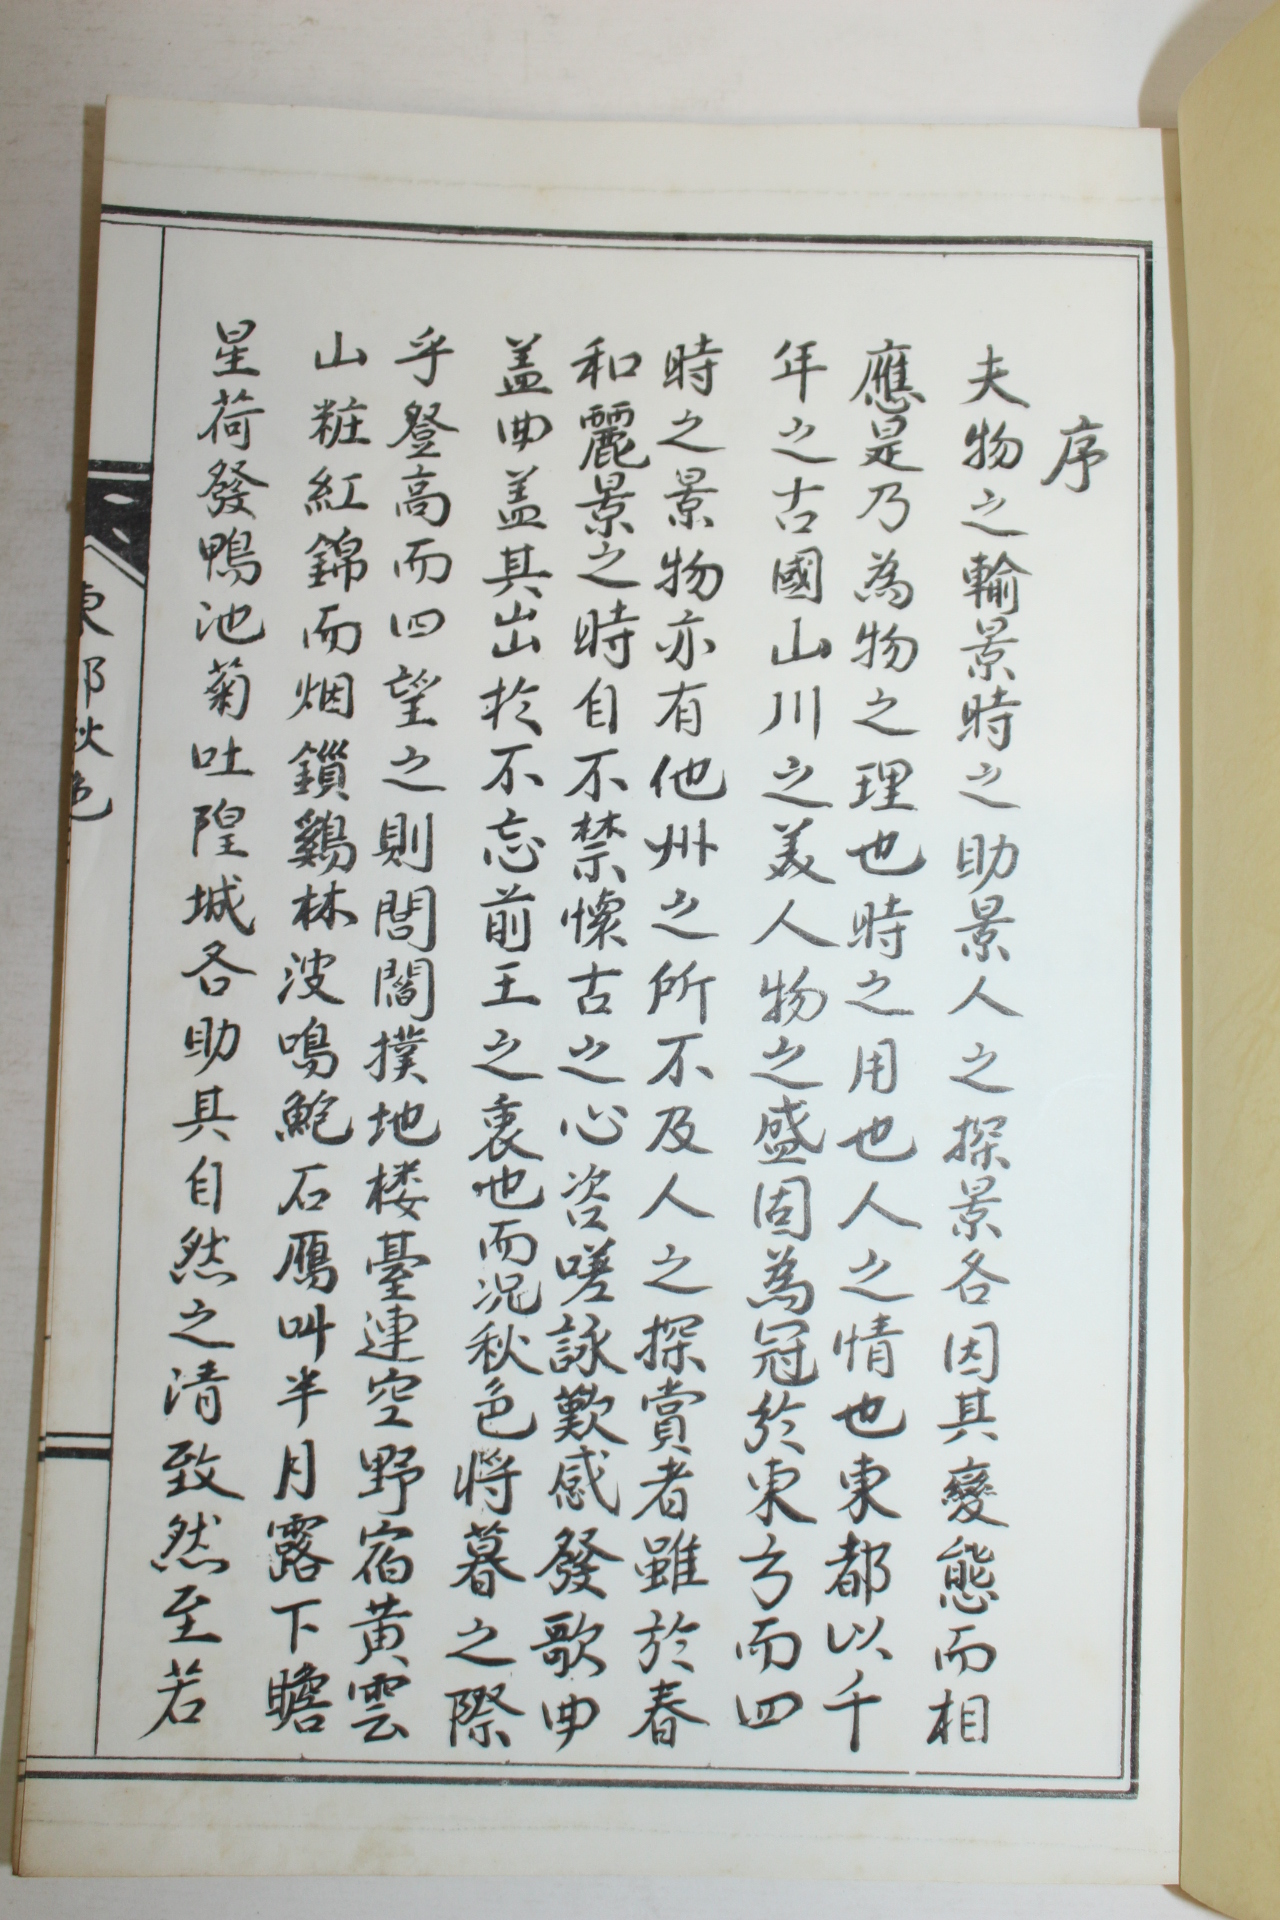 序
夫物之輸景時之助景人之探景各因其變態而相
應是乃為物之理也時之用也人之情也東都以千
年之古國山川之美人物之盛固為冠於東方而四
時之景物亦有他州之所不及人之探賞者雖於春
和麗景之時自不禁懷古之心咨嗟詠歎感發歌曲
盖曲盖其出於不忘前王之衷也而況秋色將暮之際
乎登高而四望之則閭閻撲地楼臺連空野宿黃雲
山粧紅錦而烟鎖鷄林波鳴鮑石鴈叫半月露下瞻
星荷發鴨池菊吐隍城各助其自然之清致然至若
東都秋色